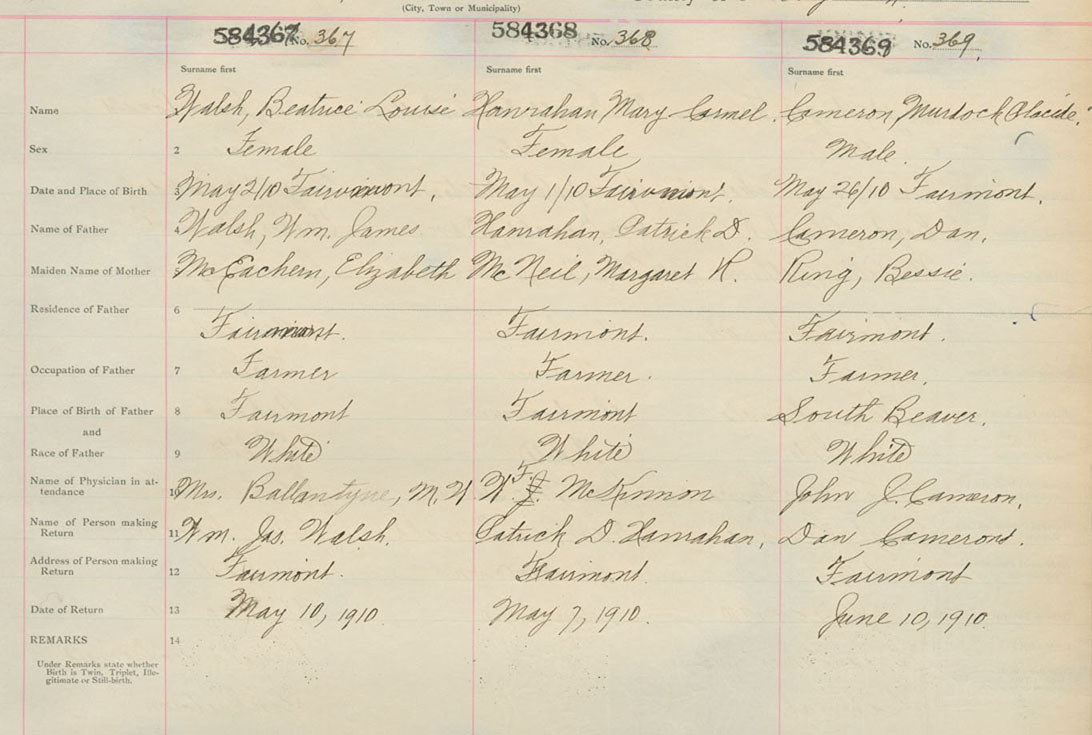 (City, Town or Municipality)
584367 No. 367 584368 No. 368 584369 No. 369
Surname first Surname first Surname first
Name Walsh, Beatrice Louise Hanrahan Mary Carmel. Cameron, Murdock Placide.
Sex 2 Female Female Male.
Date and Place of Birth 3 May 2/10 Fairmont. May 1/10 Fairmont. May 26/10 Fairmont.
Name of Father 4 Walsh, Wm. James Hanrahan, Patrick D. Cameron, Dan.
Maiden Name of Mother McEachern, Elizabeth McNeil, Margaret K. King, Bessie.
Residence of Father 6
Fairmont. Fairmont. Fairmont.
Occupation of Father 7 Farmer Farmer. Farmer.
Place of Birth of Father 8 Fairmont Fairmont South Beaver.
and
Race of Father 9 White White White
Name of Physician in at-
tendance 10 Mrs. Ballantyne, M.W W.F. McKinnon John J. Cameron.
Name of Person making
Return 11 Wm. Jas. Walsh. Patrick D. Hanrahan, Dan Cameron.
Address of Person making
Return 12 Fairmont. Fairmont. Fairmont
Date of Return 13 May 10, 1910. May 7, 1910. June 10, 1910.
REMARKS 14
Under Remarks state whether
Birth is Twin, Triplet, Ille-
gitimate or Still-birth.